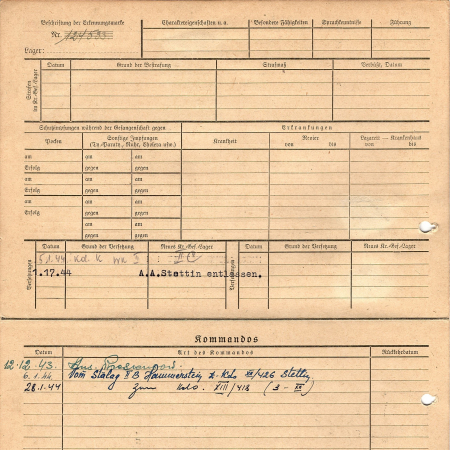 Beschriftung der Erkennungsmarke
Nr. 124533
Lager:
Charaktereigenschaften u.a.
Besondere Fähigkeiten
Sprachkenntnisse
Führung
Strafen im Kr.-Gef.-Lager
Datum
Grund der Bestrafung
Strafmaß
Verbüßt, Datum
Schutzimpfungen während der Gefangenschaft gegen
Pocken
Sonstige Impfungen
(Ty.-Paraty., Ruhr, Cholera usw.)
Erkrankungen
Krankheit
Revier
von bis
Lazarett – Krankenhaus
von bis
am am am
Erfolg gegen gegen
am am am
Erfolg gegen gegen
am am am
Erfolg gegen gegen
am am
gegen gegen
am am
gegen gegen
Versetzungen
Datum
Grund der Versetzung
Neues Kr.-Gef.-Lager
Datum
Grund der Versetzung
Neues Kr.-Gef.-Lager
1.17.44 A.A.Stettin entlassen.
Kommandos
Datum
Art des Kommandos
Rückkehrdatum
12.12.43.
6.1.44. Vom Stalag II B Hammerstein z. Kdo XII/426 Stettin
28.1.44 Zum Kdo. XIII/418